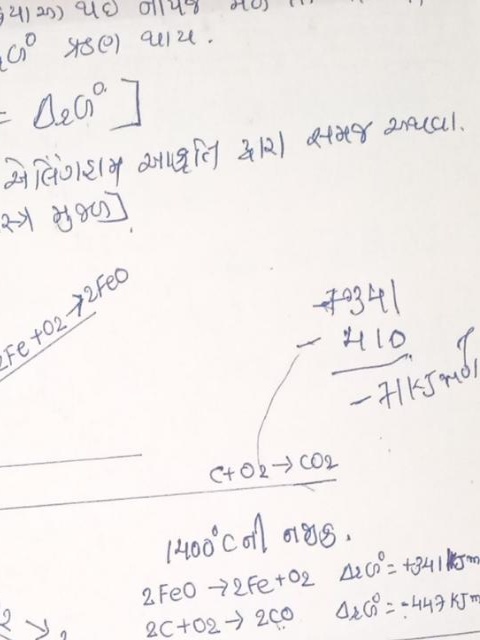 થઇ નીપજ
G° ગ્રહણ થાય.
= ΔrG°]
એલિંગહામ આકૃતિ દ્વારા સમજ આપવા.
સ્ત્ર મુજબ]
2Fe+O2→2FeO
+341
- 410
-71 KJ
C+O2→CO2
1400°C ની નજીક.
2FeO→2Fe+O2 ΔrG°=+341 KJm
2C+O2→2CO ΔrG°=-447 KJm